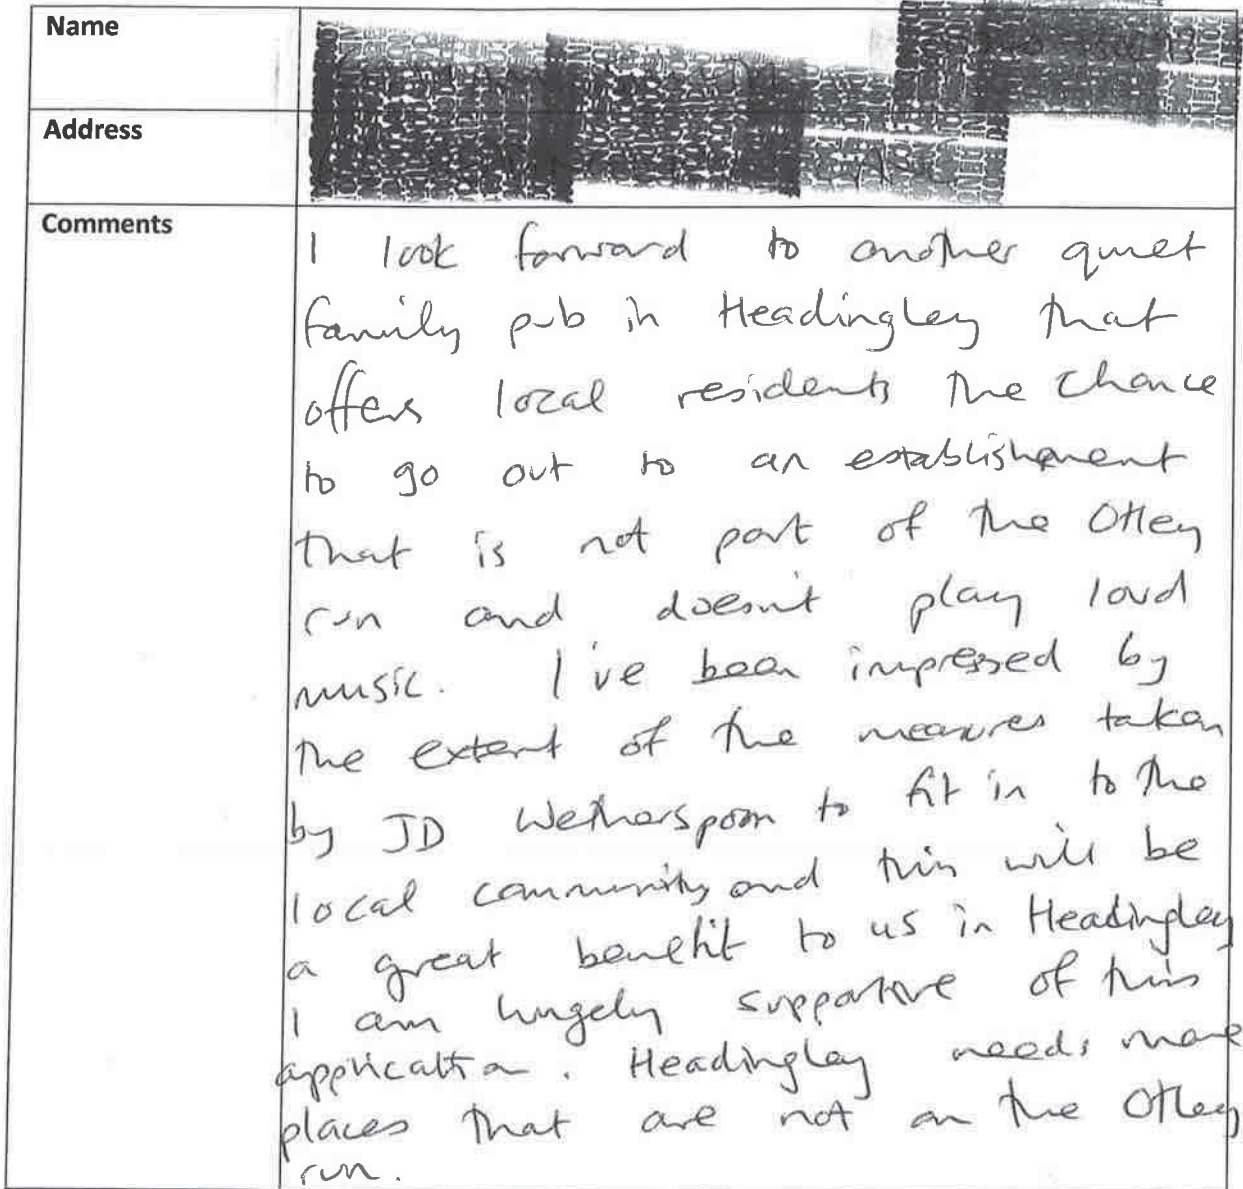 Name
Address
Comments
I look forward to another quiet
family pub in Headingley that
offers local residents the chance
to go out to an establishment
that is not part of the Otley
run and doesn't play loud
music. I've been impressed by
the extent of the measures taken
by JD Wetherspoon to fit in to the
local community and this will be
a great benefit to us in Headingley
I am hugely supportive of this
application. Headingley needs more
places that are not on the Otley
run.